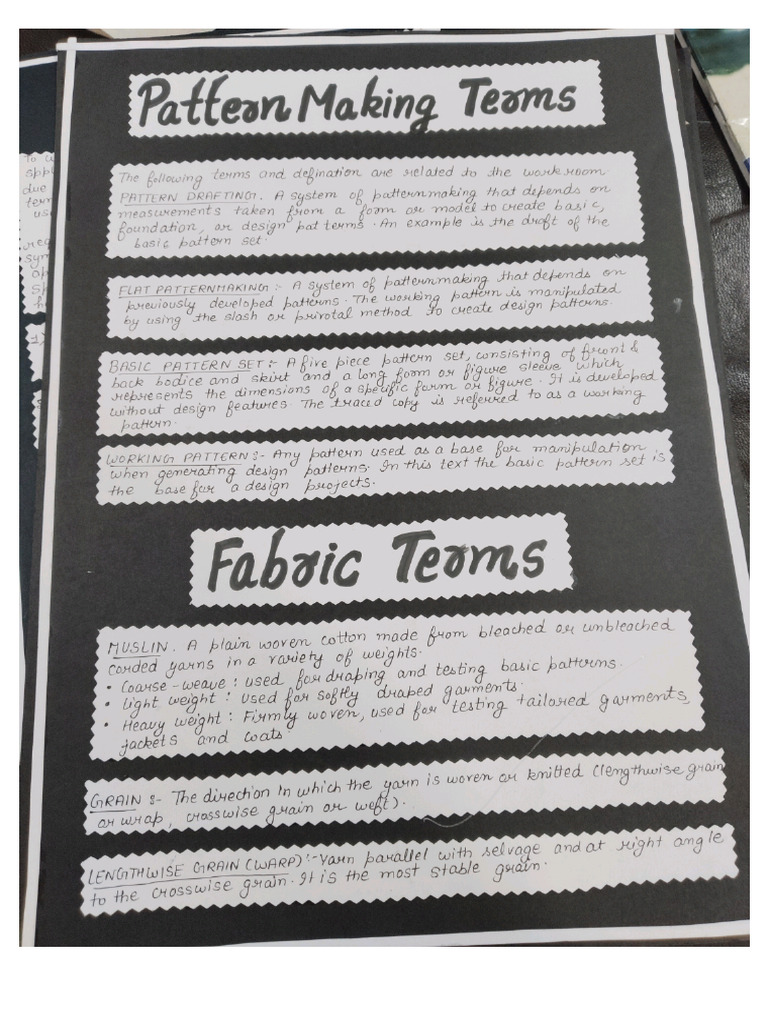 Pattern Making Terms
The following terms and defination are related to the work room.
PATTERN DRAFTING. A system of patternmaking that depends on
measurements taken from a form or model to create basic,
foundation, or design pat terms. An example is the draft of the
basic pattern set.
FLAT PATTERNMAKING:- A system of patternmaking that depends on
previously developed patterns. The working pattern is manipulated
by using the slash or privotal method to create design patterns.
BASIC PATTERN SET:- A five piece pattern set, consisting of front &
back bodice and skirt and a long form or figure sleeve which
represents the dimensions of a specific form or figure. It is developed
without design features. The traced copy is referred to as a working
pattern.
WORKING PATTERN:- Any pattern used as a base for manipulation
when generating design patterns. In this text the basic pattern set is
the base for a design projects.
Fabric Terms
MUSLIN. A plain woven cotton made from bleached or unbleached
corded yarns in a variety of weights.
• Coarse-weave: used for draping and testing basic patterns.
• Light weight: Used for softly draped garments.
• Heavy weight: Firmly woven, used for testing tailored garments,
jackets and coats.
GRAIN:- The direction in which the yarn is woven or knitted (lengthwise grain
or wrap, crosswise grain or weft).
LENGTHWISE GRAIN (WARP):- Yarn parallel with selvage and at right angle
to the crosswise grain. It is the most stable grain.